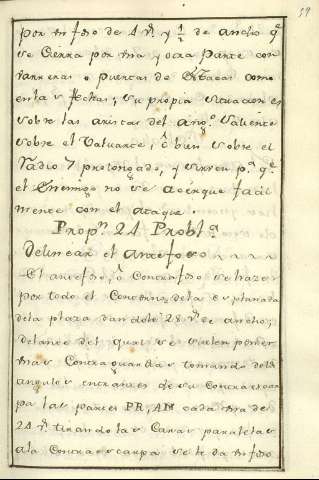 59
por un foso de 4 v.s y 1/2 de ancho q.e
se cierra por una y otra parte con
varreras o puertas de Estacas como
en las flechas; su propia situacion es
sobre las aristas del ang.o saliente
sobre el Valuarte, o bien sobre el
Radio 7 prolongado, y sirven p.a q.e
el Enemigo no se acerque facil
mente con el ataque.
Prop.n 24 Probl.a
Delinear el antefoso
El antefoso, o Contrafoso se haze
por todo el Contorno de la esplanada
de la plaza dandole 28 v.s de ancho,
delante del qual se suelen poner
unas Contraguardias tomando del
angulo entrantes de su Contraescar
pa las partes PR, AM cada una de
24 v.s tirando las Caras paralelas
a la Contraescarpa se le da un foso